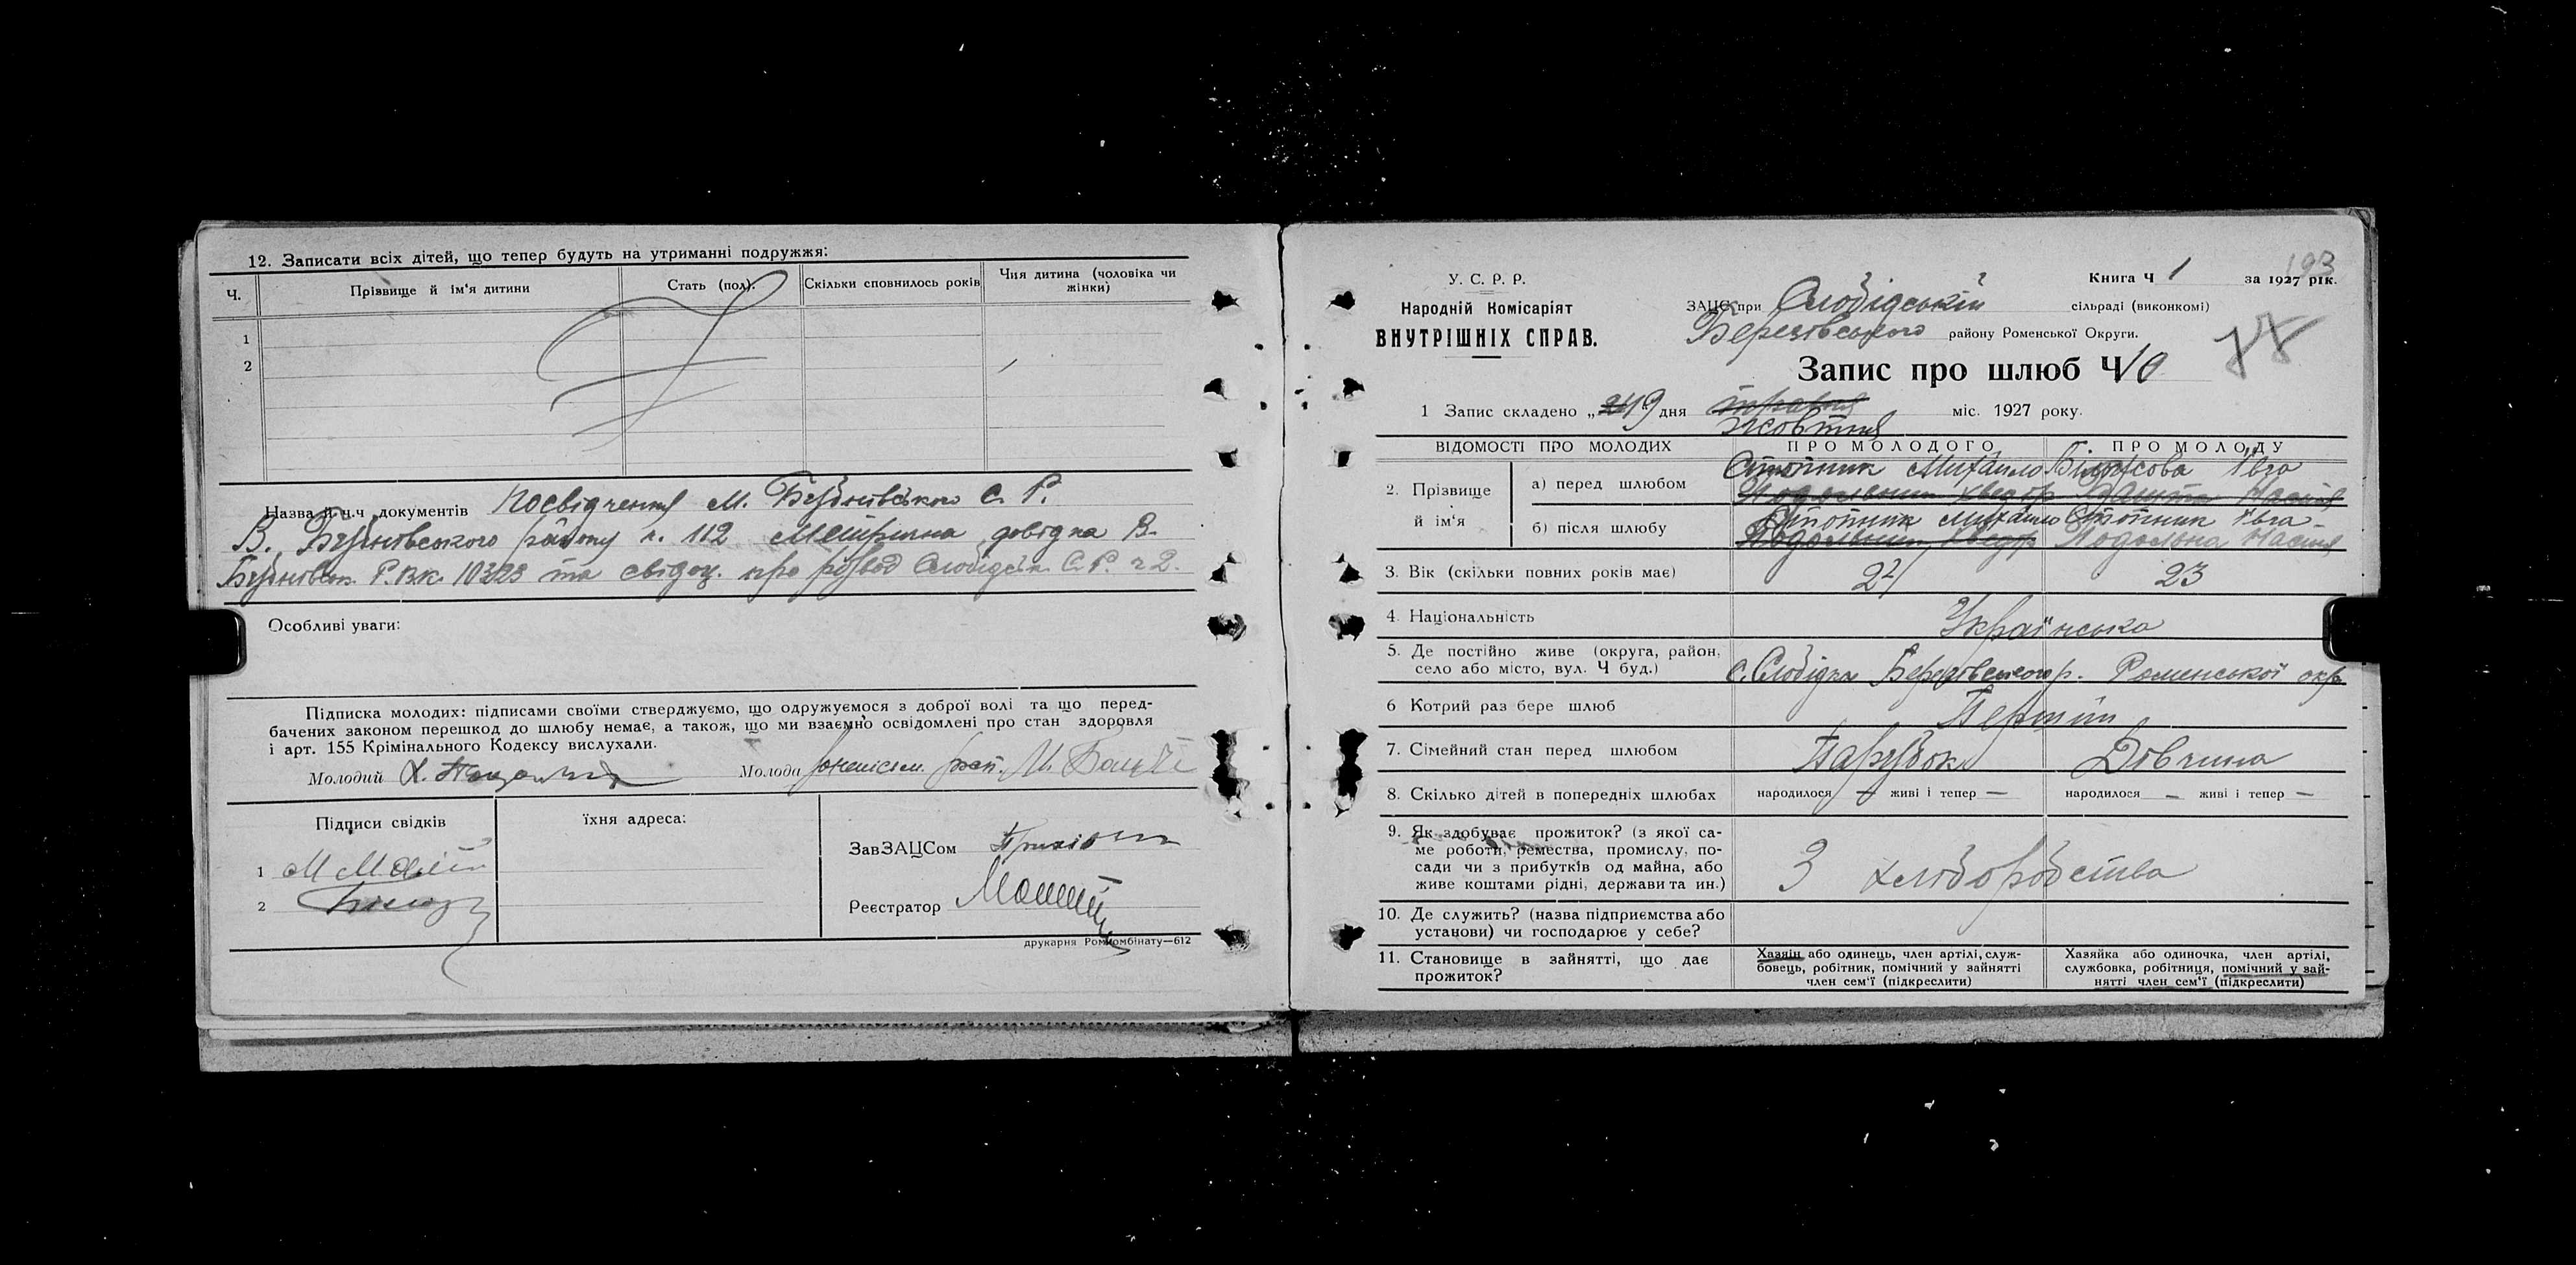 12. Записати всіх дітей, що тепер будуть на утриманні подружжя:
Ч. Прізвище й ім'я дитини Стать (пол). Скільки сповнилось років Чия дитина (чоловіка чи жінки)
1
2
Назва й ч.ч документів Посвідчення М.
В. району ч. 112 Метрична довідка В.
Р.В.К. 10323 та свідоц. про розвод Слобідськ. С.Р. ч 2.
Особливі уваги:
Підписка молодих: підписами своїми стверджуємо, що одружуємося з доброї волі та що перед-
бачених законом перешкод до шлюбу немає, а також, що ми взаємно освідомлені про стан здоровля
і арт. 155 Крімінального Кодексу вислухали.
Молодий Х. Молода М.
Підписи свідків їхня адреса:
1 М
2
ЗавЗАЦСом
Реєстратор
друкарня Ромкомбінату—612
193
У. С. Р. Р.
Народній Комісаріят
ВНУТРІШНІХ СПРАВ.
Книга Ч 1 за 1927 рік.
ЗАЦС при Слобідській сільраді (виконкомі)
Березівського району Роменської Округи.
Запис про шлюб Ч 10
1 Запис складено „24 19" дня травня жовтня міс. 1927 року.
ВІДОМОСТІ ПРО МОЛОДИХ ПРО МОЛОДОГО ПРО МОЛОДУ
2. Прізвище й ім'я
а) перед шлюбом Михайло Ївга
Хведір Настя
б) після шлюбу Михайло Ївга
Хведір Настя
3. Вік (скільки повних років має) 23
4. Національність Українська
5. Де постійно живе (округа, район, село або місто, вул. Ч буд.) с. Слобідка Березівського р. Роменської окр
6 Котрий раз бере шлюб Перший
7. Сімейний стан перед шлюбом Парубок Дівчина
8. Скілько дітей в попередніх шлюбах народилося — живі і тепер — народилося — живі і тепер —
9. Як здобуває прожиток? (з якої са-
ме роботи, ремества, промислу, по-
сади чи з прибутків од майна, або
живе коштами рідні, держави та ин.)
З хліборобства
10. Де служить? (назва підприємства або
установи) чи господарює у себе?
11. Становище в зайнятті, що дає
прожиток?
Хазяін або одинець, член артілі, служ-
бовець, робітник, помічний у зайнятті
член сем'ї (підкреслити)
Хазяйка або одиночка, член артілі,
службовка, робітниця, помічний у зай-
нятті член сем'ї (підкреслити)